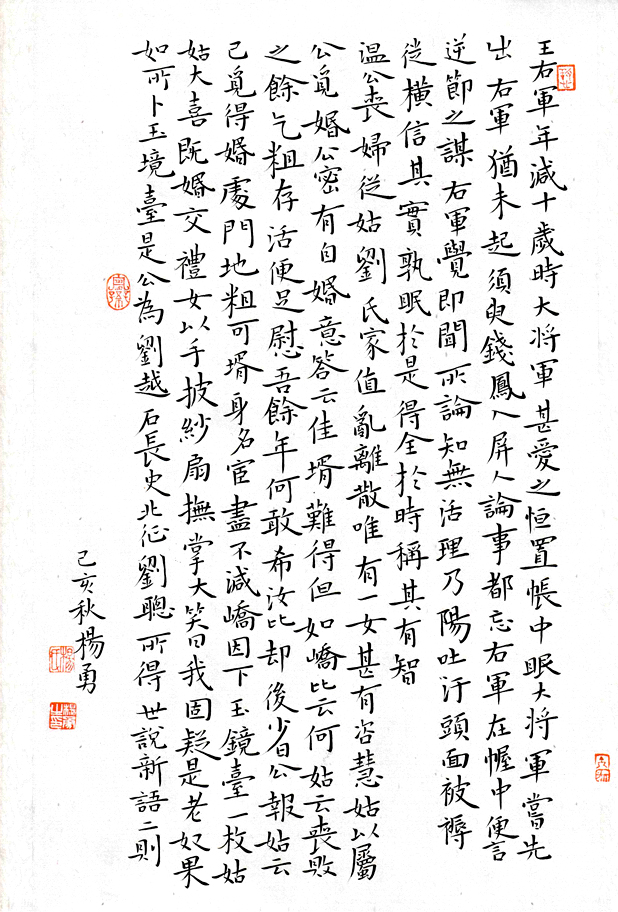 王右軍年減十歲時大将軍甚愛之恒置帳中眠大将軍嘗先
出右軍猶未起須臾錢鳳入屏人論事都忘右軍在幄中便言
逆節之謀右軍覺即聞所論知無活理乃陽吐汙頭面被褥
従橫信其實孰眠於是得全於時稱其有智
温公丧婦従姑劉氏家值亂離散唯有一女甚有姿慧姑以屬
公覓婚公密有自婚意答云佳壻難得但如嶠比云何姑云喪敗
之餘乞粗存活便足慰吾餘年何敢希汝比却後少日公報姑云
已覓得婚處門地粗可壻身名宦盡不減嶠因下玉鏡臺一枚姑
姑大喜既婚交禮女以手披紗扇撫掌大笑曰我固疑是老奴果
如所卜玉境臺是公為劉越石長史北征劉聰所得 世說新語二則
己亥秋楊勇